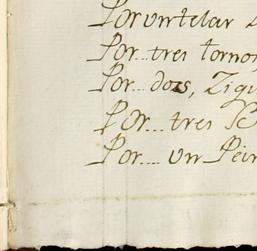 Por un telar
Por... tres tornos
Por... dos, Zigu
Por... tres
Por.... un Pein